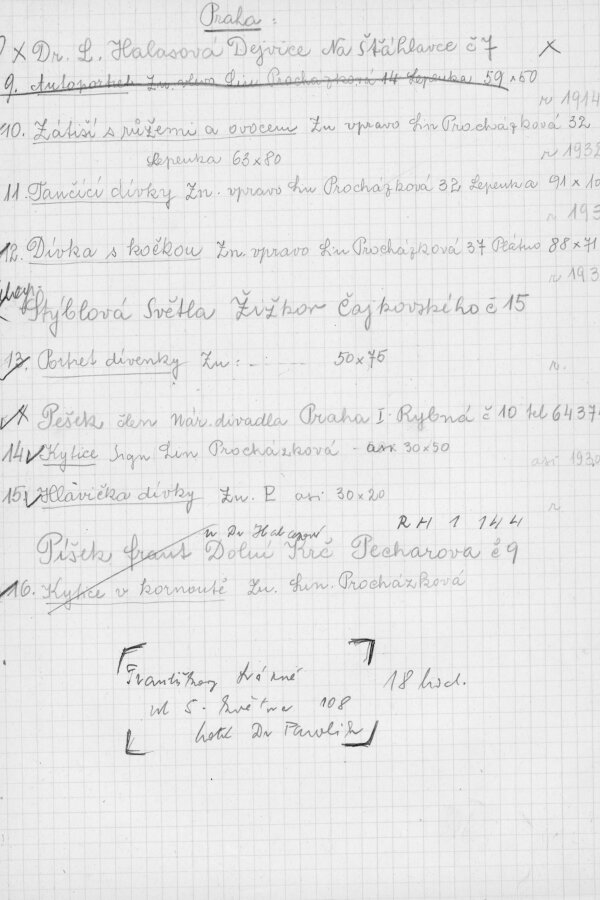 Praha:
X Dr. L. Halasová Dejvice Na Šťáhlavce č 7 X
9. Autoportret Zn. vlevo Lin Procházková 14 Lepenka 59 x 50
r 1914
10. Zátiší s růžemi a ovocem Zn vpravo Lin Procházková 32
Lepenka 63 x 80 r 1932
11. Tančící dívky Zn. vpravo Lin Procházková 32 Lepenka 91 x 10
r 193
12. Dívka s kočkou Zn. vpravo Lin Procházková 37 Plátno 88 x 71
r 193
Stýblová Světla Žižkov Čajkovského č 15
13. Portret divenky Zn: 50 x 75 r.
X Pešek člen Nár. divadla Praha I Rybná č 10 tel 6437
14. Kytice Sign Lin Procházková - asi 30 x 50 asi 1930
15. Hlavička dívky Zn. P. asi 30 x 20 r
RH 1 144
Píšek frant Dolní Krč Pecharova č 9
16. Kytice v kornoutě Zn. Lin. Procházková
Františkovy Lázně 18 hod.
ul 5. května 108
hotel Dr Pavolík